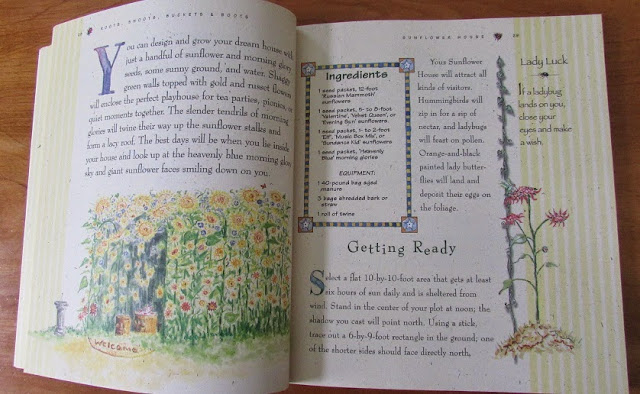 ROOTS, SHOOTS, BUCKETS & BOOTS
You can design and grow your dream house with
just a handful of sunflower and morning glory
seeds, some sunny ground, and water. Shaggy
green walls topped with gold and russet flowers
will enclose the perfect playhouse for tea parties, picnics, or
quiet moments together. The slender tendrils of morning
glories will twine their way up the sunflower stalks and
form a lacy roof. The best days will be when you lie inside
your house and look up at the heavenly blue morning glory
sky and giant sunflower faces smiling down on you.
Welcome
SUNFLOWER HOUSE
Ingredients
1 seed packet, 12-foot
'Russian Mammoth'
sunflowers
1 seed packet, 5- to 8-foot
'Valentine', 'Velvet Queen', or
'Evening Sun' sunflowers
1 seed packet, 1- to 2-foot
'Elf', 'Music Box Mix', or
'Sundance Kid' sunflowers
1 seed packet, 'Heavenly
Blue' morning glories
EQUIPMENT:
1 40-pound bag aged
manure
3 bags shredded bark or
straw
1 roll of twine
Your Sunflower
House will attract all
kinds of visitors.
Hummingbirds will
zip in for a sip of
nectar, and ladybugs
will feast on pollen.
Orange-and-black
painted lady butter-
flies will land and
deposit their eggs on
the foliage.
Getting Ready
Select a flat 10-by-10-foot area that gets at least
six hours of sun daily and is sheltered from
wind. Stand in the center of your plot at noon; the
shadow you cast will point north. Using a stick,
trace out a 6-by-9-foot rectangle in the ground; one
of the shorter sides should face directly north,
Lady Luck
If a ladybug
lands on you,
close your
eyes and make
a wish.